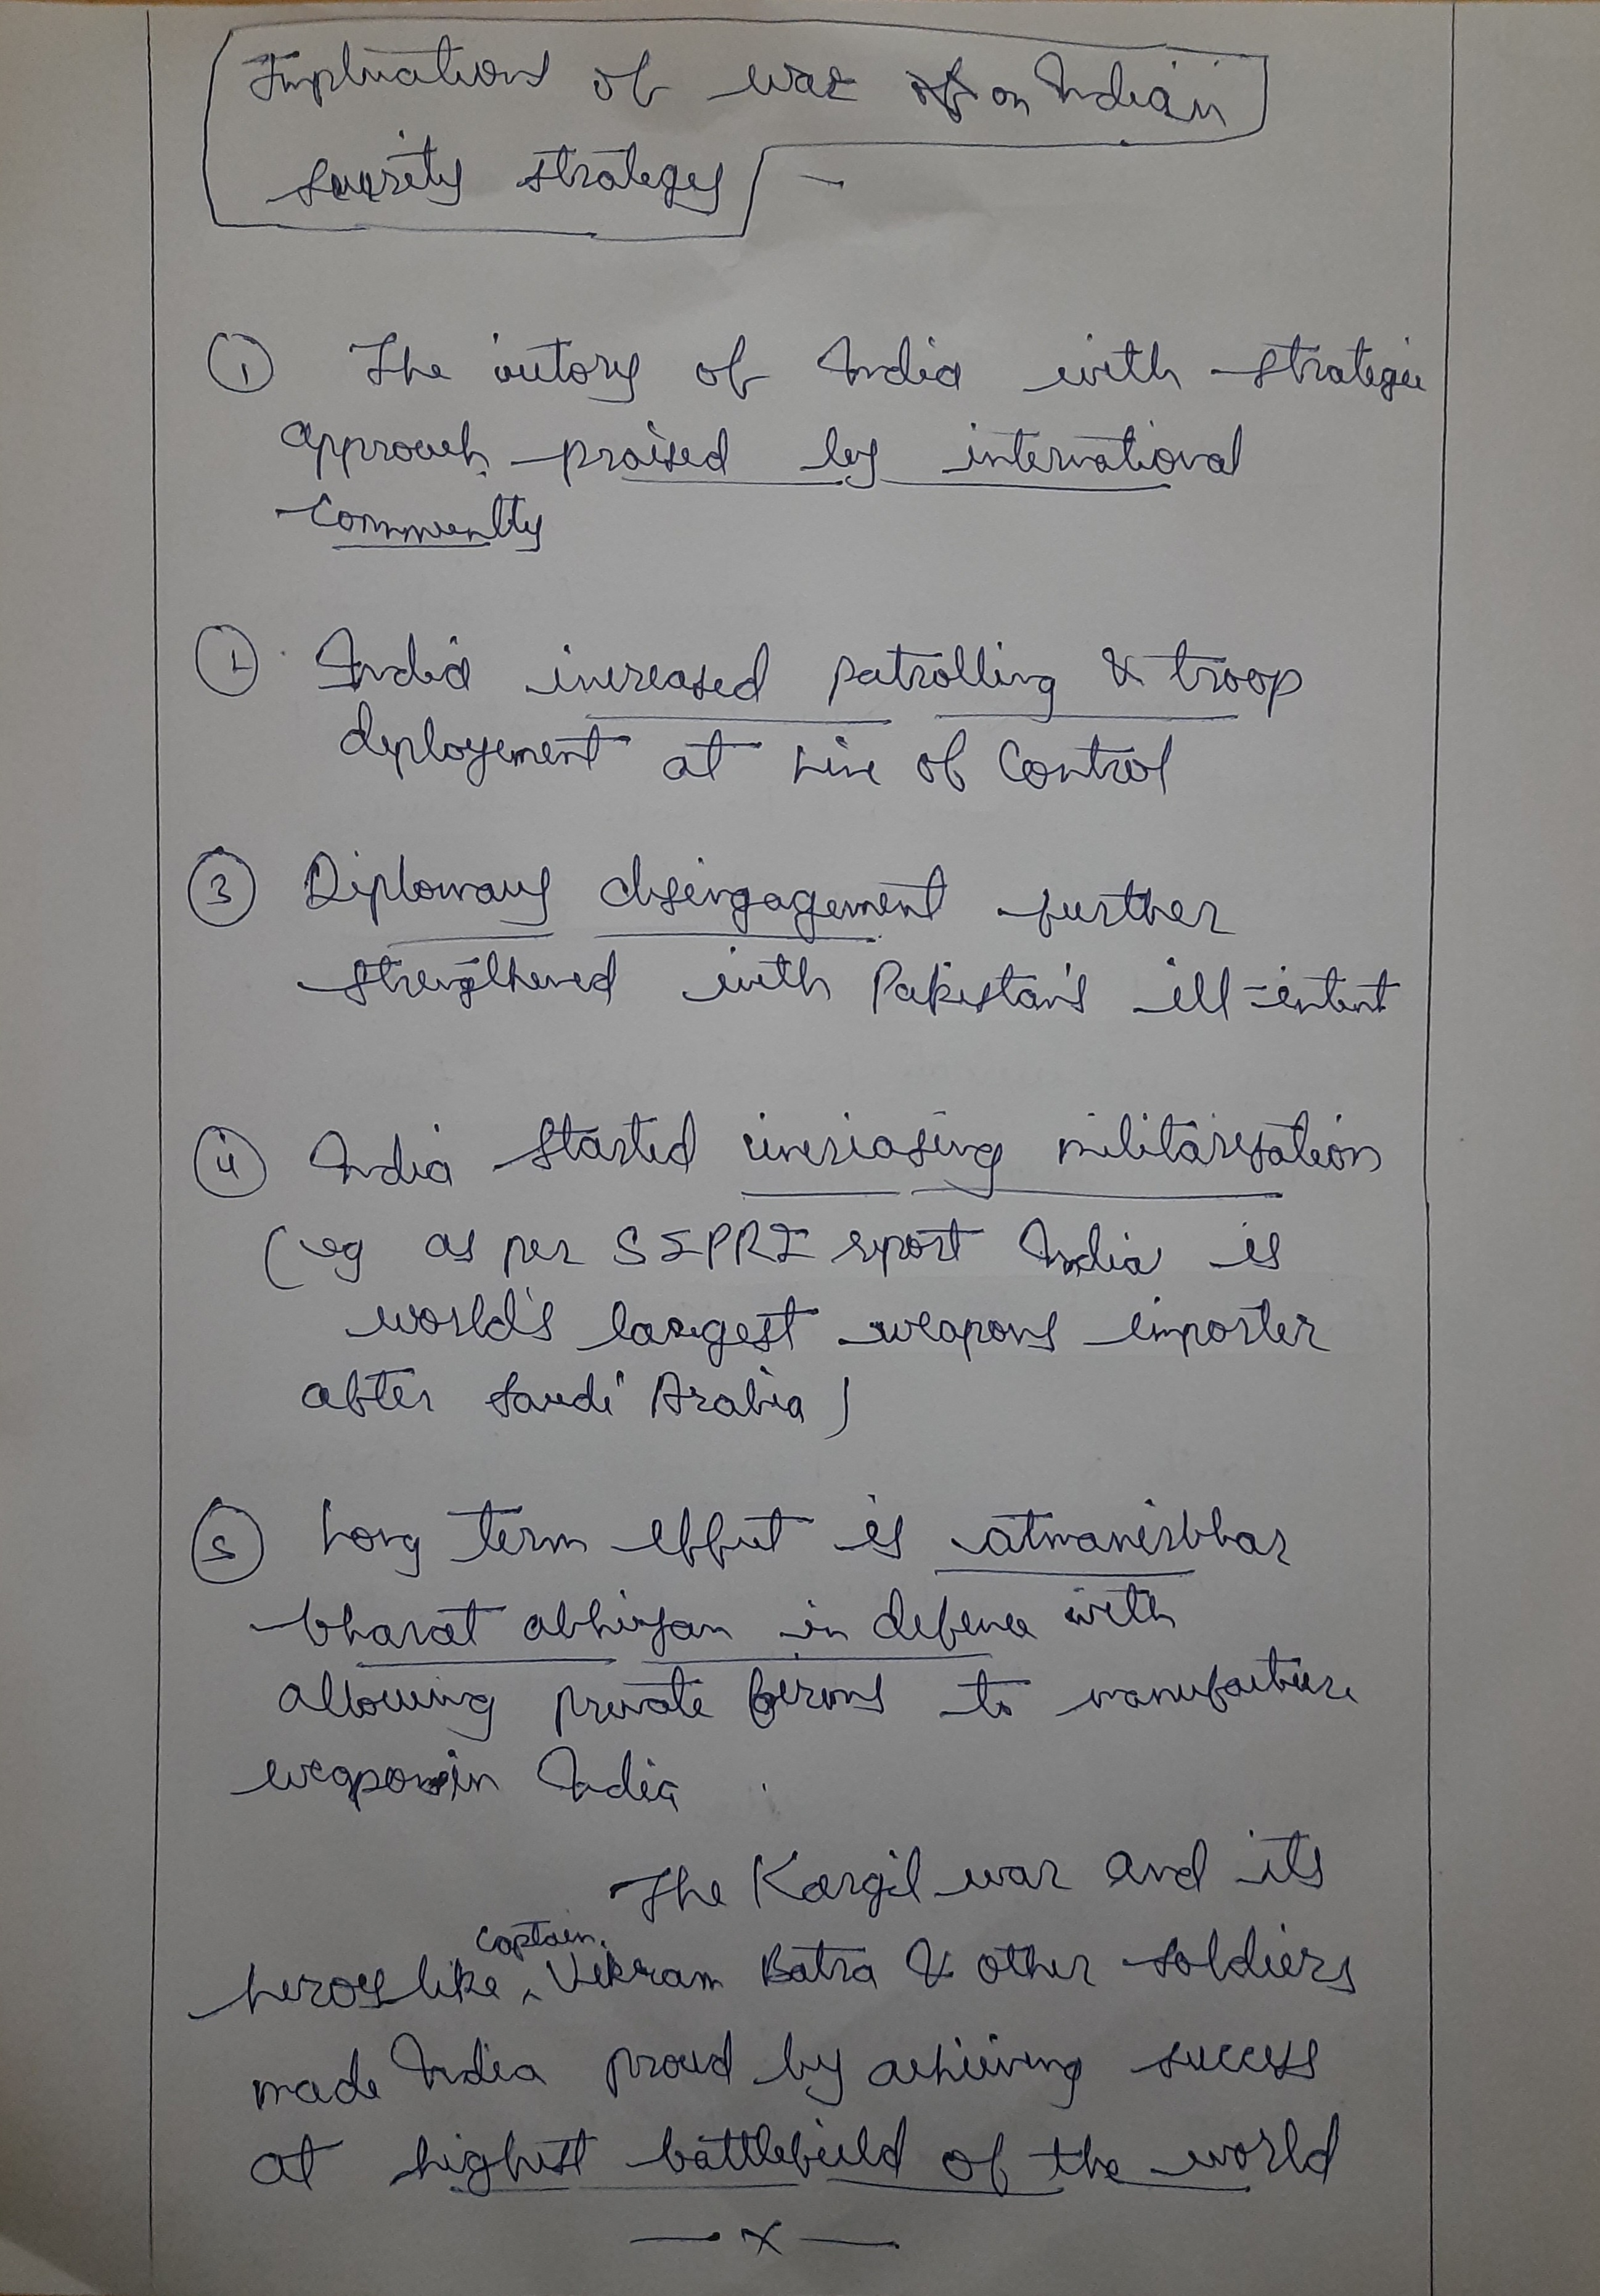 Implications of war of on Indian
security strategy -
① The victory of India with strategic
approach praised by international
community
② India increased patrolling & troop
deployement at Line of Control
③ Diplomacy disengagement further
strengthened with Pakistan's ill-intent
④ India started increasing militarisation
(eg as per SIPRI report India is
world's largest weapons importer
after Saudi Arabia)
⑤ Long term effect is atmanirbhar
bharat abhiyan in defence with
allowing private firms to manufacture
weapon in India.
The Kargil war and its
heroes like Captain Vikram Batra & other soldiers
made India proud by achieving success
at highest battlefield of the world
— x —